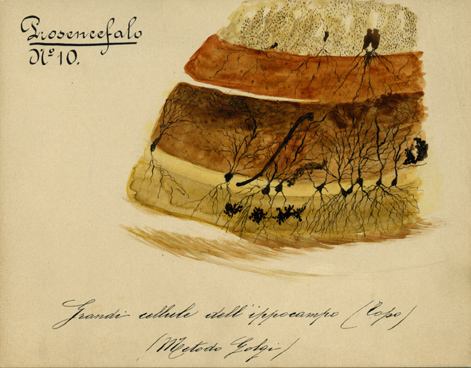 Prosencefalo
Nº 10.
Grandi cellule dell'ippocampo (Topo)
(Metodo Golgi)